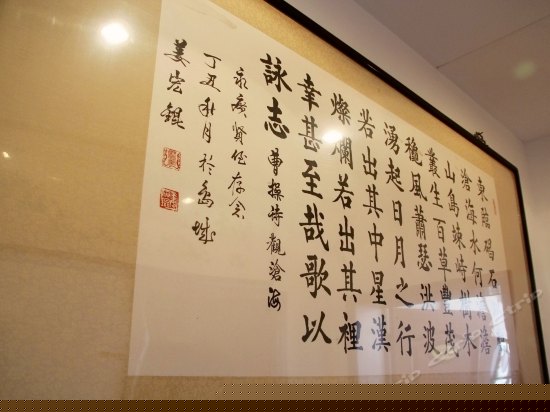 東臨碣石
滄海水何澹澹
山島竦峙樹木
叢生百草豐茂
穐風蕭瑟洪波
湧起日月之行
若出其中星漢
燦爛若出其裡
幸甚至哉歌以
詠志 曹操詩觀滄海
永廣贤侄存念
丁丑秋月於島城
姜宏錕